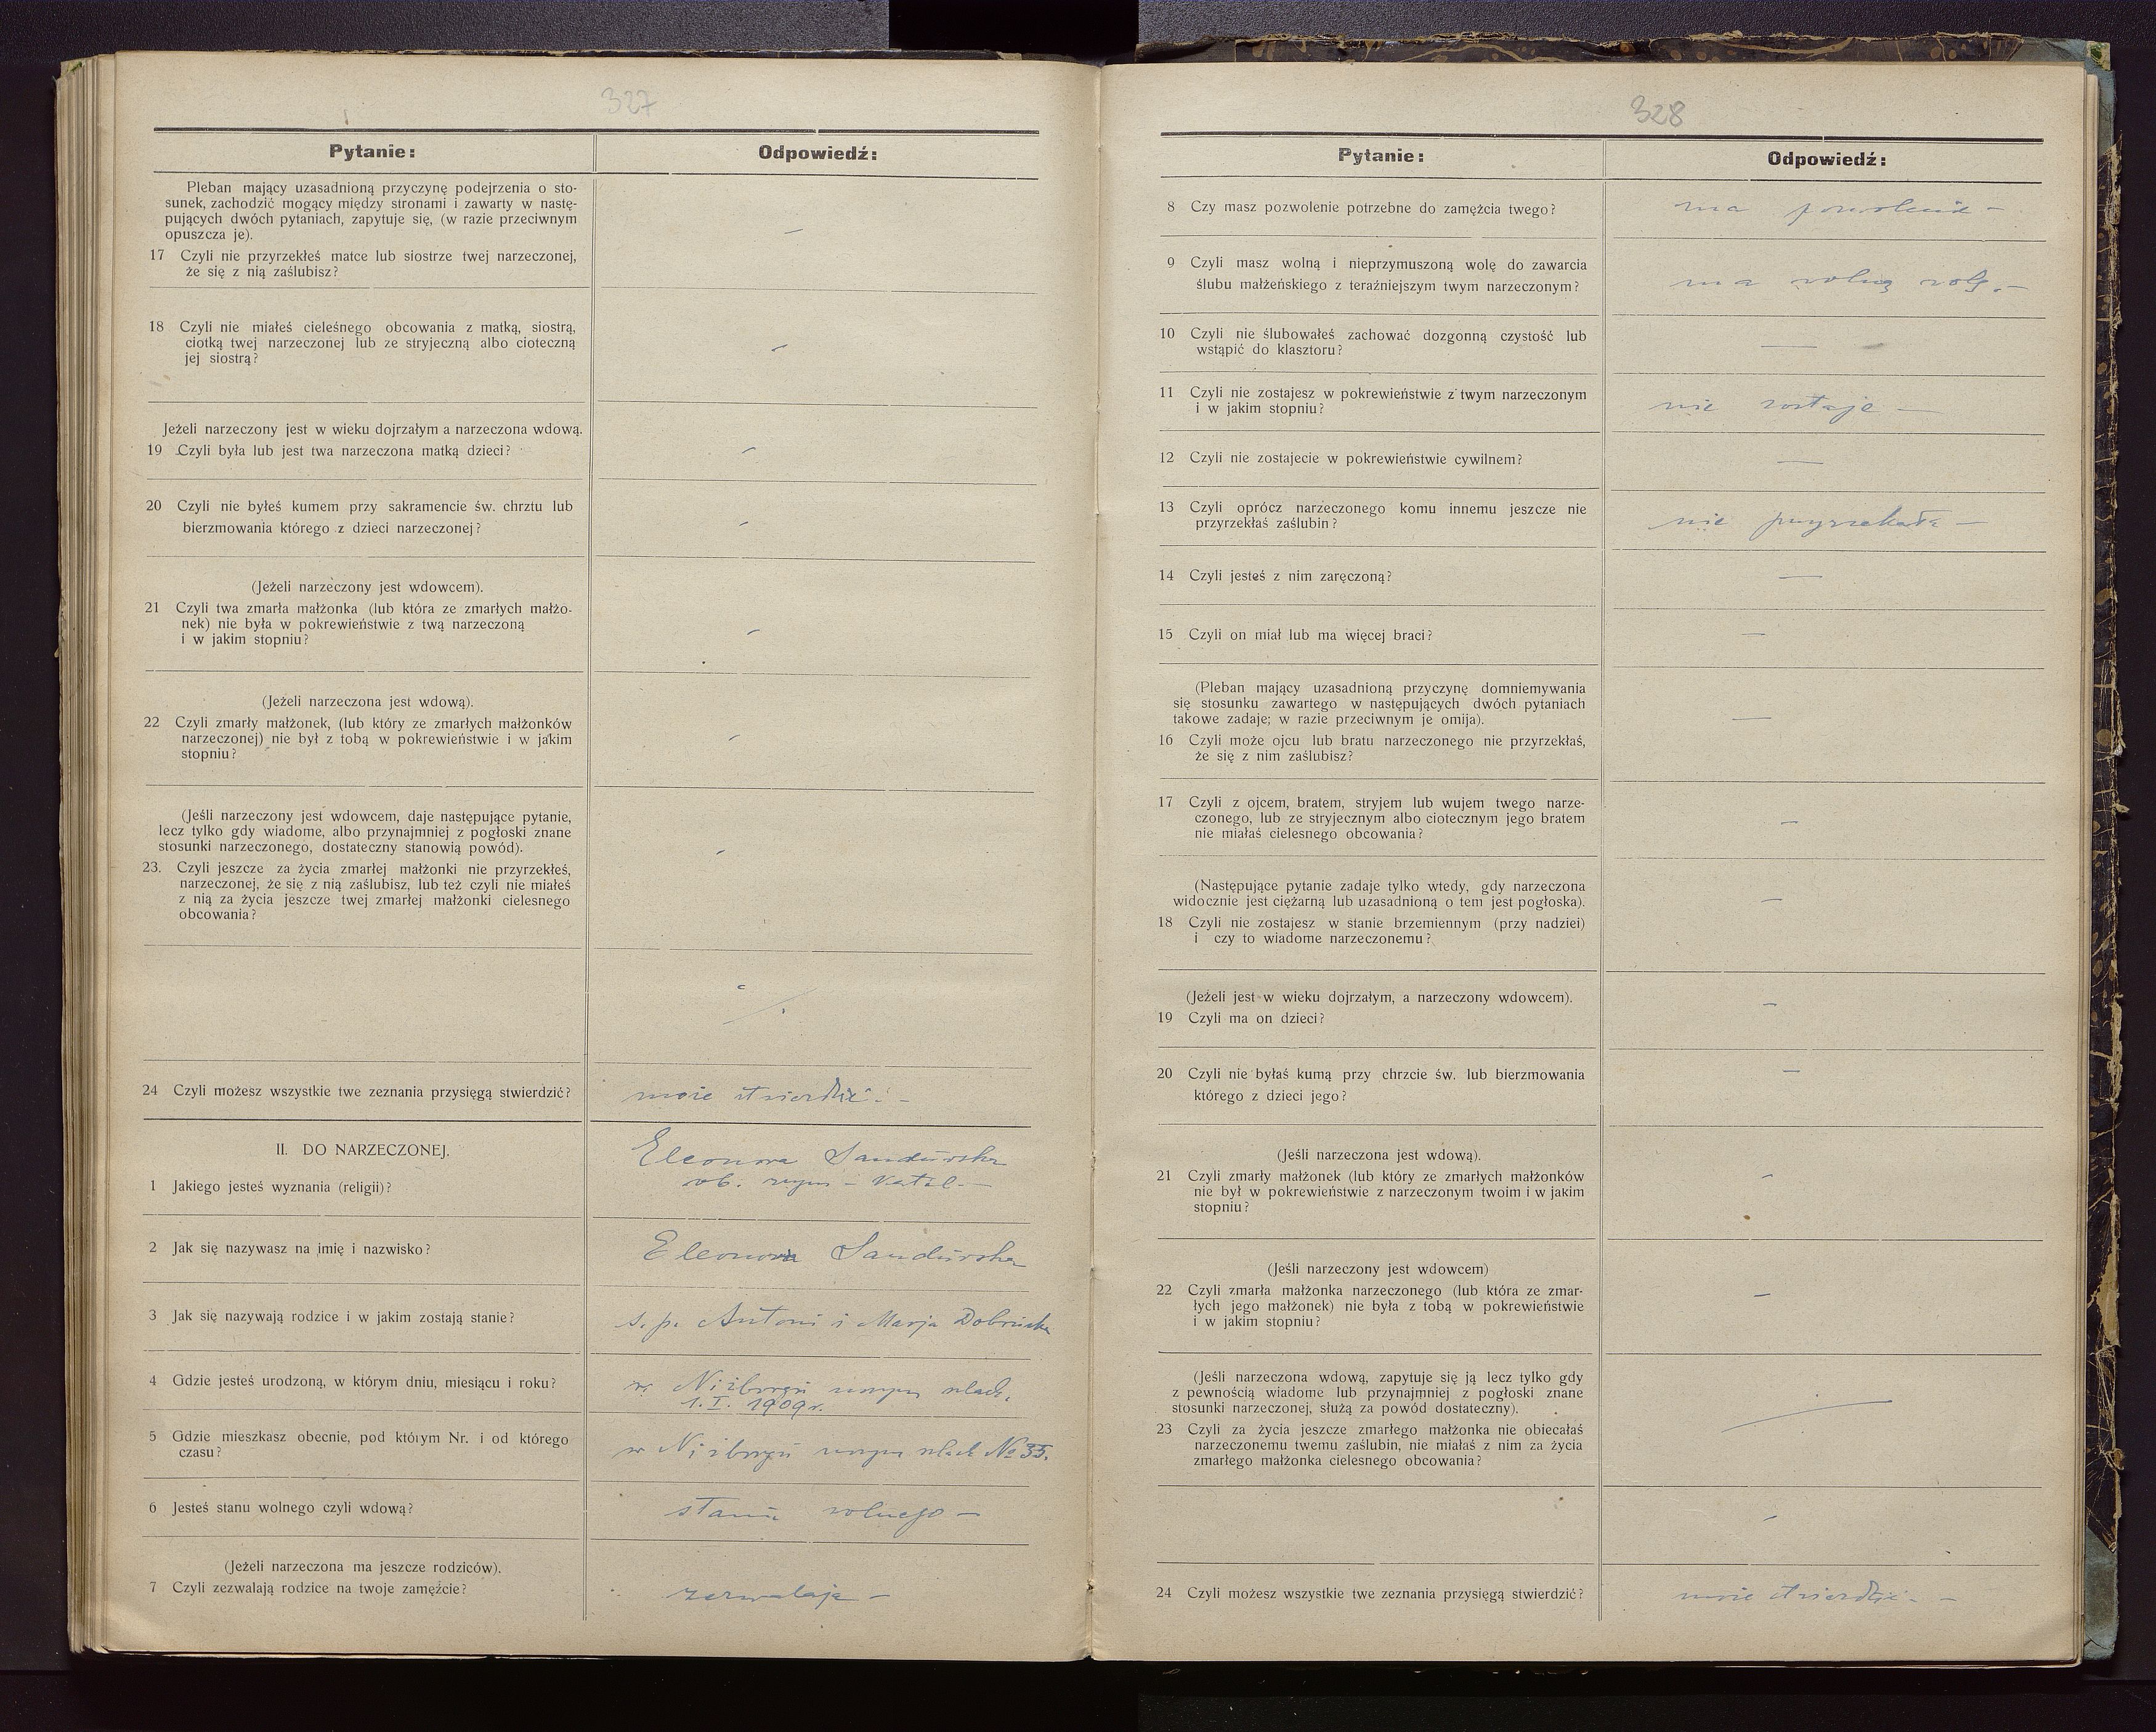 327
Pytanie:
Odpowiedź:
Pleban mający uzasadnioną przyczynę podejrzenia o sto-
sunek, zachodzić mogący między stronami i zawarty w nastę-
pujących dwóch pytaniach, zapytuje się, (w razie przeciwnym
opuszcza je).
—
17 Czyli nie przyrzekłeś matce lub siostrze twej narzeczonej,
że się z nią zaślubisz?
18 Czyli nie miałeś cieleśnego obcowania z matką, siostrą,
ciotką twej narzeczonej lub ze stryjeczną albo cioteczną
jej siostrą?
—
Jeżeli narzeczony jest w wieku dojrzałym a narzeczona wdową.
19 Czyli była lub jest twa narzeczona matką dzieci?
—
20 Czyli nie byłeś kumem przy sakramencie św. chrztu lub
bierzmowania którego z dzieci narzeczonej?
—
(Jeżeli narzeczony jest wdowcem).
21 Czyli twa zmarła małżonka (lub która ze zmarłych małżo-
nek) nie była w pokrewieństwie z twą narzeczoną
i w jakim stopniu?
—
(Jeżeli narzeczona jest wdową).
22 Czyli zmarły małżonek, (lub który ze zmarłych małżonków
narzeczonej) nie był z tobą w pokrewieństwie i w jakim
stopniu?
—
(Jeśli narzeczony jest wdowcem, daje następujące pytanie,
lecz tylko gdy wiadome, albo przynajmniej z pogłoski znane
stosunki narzeczonego, dostateczny stanowią powód).
—
23. Czyli jeszcze za życia zmarłej małżonki nie przyrzekłeś,
narzeczonej, że się z nią zaślubisz, lub też czyli nie miałeś
z nią za życia jeszcze twej zmarłej małżonki cielesnego
obcowania?
24 Czyli możesz wszystkie twe zeznania przysięgą stwierdzić?
może stwierdzić. —
II. DO NARZECZONEJ.
Eleonora Sandurska
1 Jakiego jesteś wyznania (religii)?
ob. rzym - katol. —
2 Jak się nazywasz na imię i nazwisko?
Eleonora Sandurska
3 Jak się nazywają rodzice i w jakim zostają stanie?
s. p. Antoni i Marja
4 Gdzie jesteś urodzoną, w którym dniu, miesiącu i roku?
w Niżborgu
1. I. 1909 r.
5 Gdzie mieszkasz obecnie, pod którym Nr. i od którego
czasu?
w Niżborgu № 35.
6 Jesteś stanu wolnego czyli wdową?
stanu wolnego —
(Jeżeli narzeczona ma jeszcze rodziców).
7 Czyli zezwalają rodzice na twoje zamęźcie?
zezwalają —
328
Pytanie:
Odpowiedź:
8 Czy masz pozwolenie potrzebne do zamężcia twego?
ma pozwolenie —
9 Czyli masz wolną i nieprzymuszoną wolę do zawarcia
ślubu małżeńskiego z teraźniejszym twym narzeczonym?
ma wolną wolę. —
10 Czyli nie ślubowałeś zachować dozgonną czystość lub
wstąpić do klasztoru?
—
11 Czyli nie zostajesz w pokrewieństwie z twym narzeczonym
i w jakim stopniu?
nie zostaje —
12 Czyli nie zostajecie w pokrewieństwie cywilnem?
—
13 Czyli oprócz narzeczonego komu innemu jeszcze nie
przyrzekłaś zaślubin?
nie przyrzekała —
14 Czyli jesteś z nim zaręczoną?
—
15 Czyli on miał lub ma więcej braci?
—
(Pleban mający uzasadnioną przyczynę domniemywania
się stosunku zawartego w następujących dwóch pytaniach
takowe zadaje; w razie przeciwnym je omija).
—
16 Czyli może ojcu lub bratu narzeczonego nie przyrzekłaś,
że się z nim zaślubisz?
17 Czyli z ojcem, bratem, stryjem lub wujem twego narze-
czonego, lub ze stryjecznym albo ciotecznym jego bratem
nie miałaś cielesnego obcowania?
—
(Następujące pytanie zadaje tylko wtedy, gdy narzeczona
widocznie jest ciężarną lub uzasadnioną o tem jest pogłoska).
—
18 Czyli nie zostajesz w stanie brzemiennym (przy nadziei)
i czy to wiadome narzeczonemu?
(Jeżeli jest w wieku dojrzałym, a narzeczony wdowcem).
—
19 Czyli ma on dzieci?
20 Czyli nie byłaś kumą przy chrzcie św. lub bierzmowania
którego z dzieci jego?
—
(Jeśli narzeczona jest wdową).
21 Czyli zmarły małżonek (lub który ze zmarłych małżonków
nie był w pokrewieństwie z narzeczonym twoim i w jakim
stopniu?
—
(Jeśli narzeczony jest wdowcem)
22 Czyli zmarła małżonka narzeczonego (lub która ze zmar-
łych jego małżonek) nie była z tobą w pokrewieństwie
i w jakim stopniu?
—
(Jeśli narzeczona wdową, zapytuje się ją lecz tylko gdy
z pewnością wiadome lub przynajmniej z pogłoski znane
stosunki narzeczonej, służą za powód dostateczny).
23 Czyli za życia jeszcze zmarłego małżonka nie obiecałaś
narzeczonemu twemu zaślubin, nie miałaś z nim za życia
zmarłego małżonka cielesnego obcowania?
—
24 Czyli możesz wszystkie twe zeznania przysięgą stwierdzić?
może stwierdzić. —